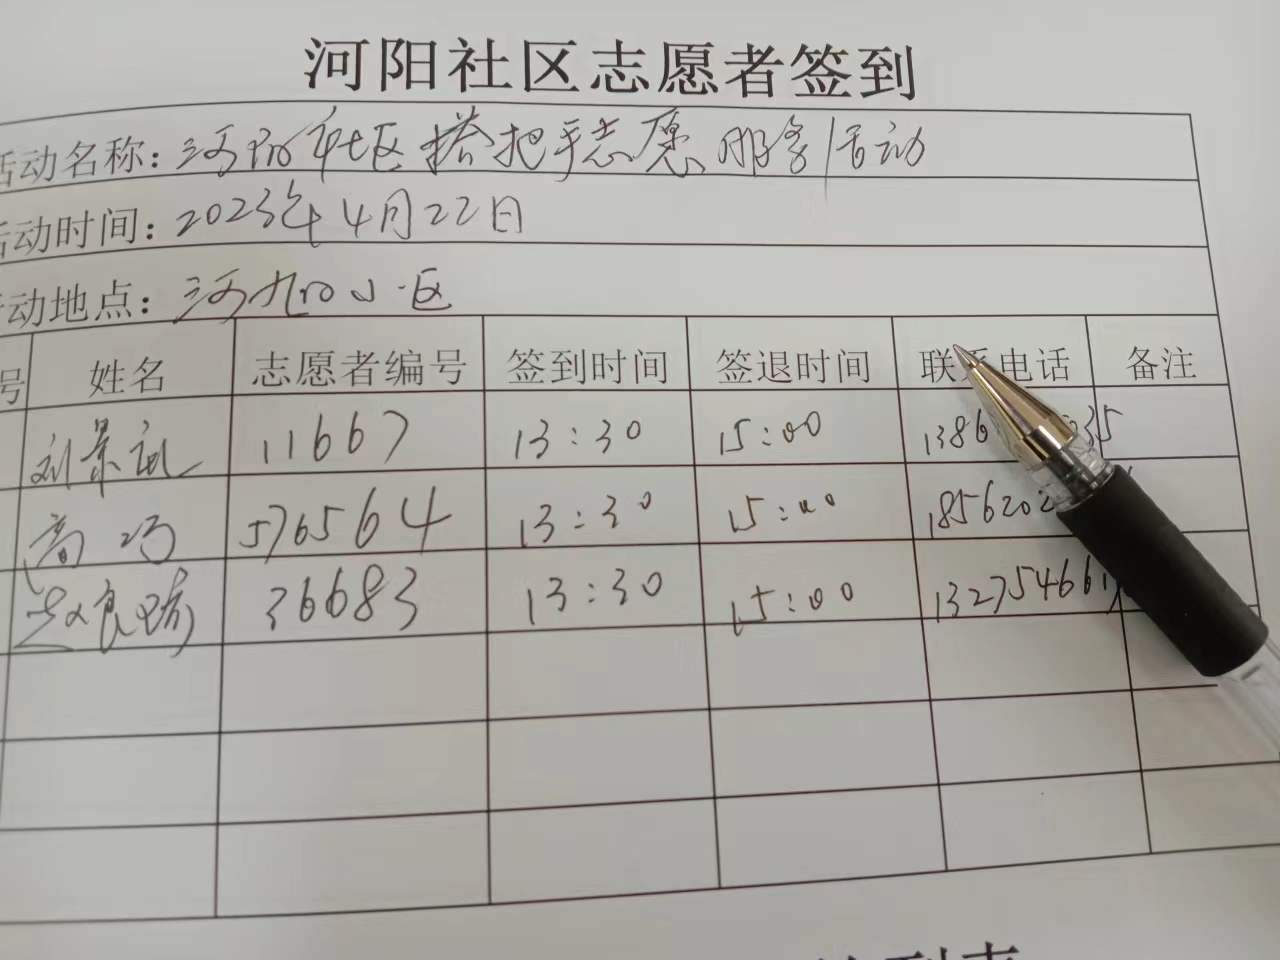 河阳社区志愿者签到
活动名称：河阳社区搭把手志愿服务活动
活动时间：2023年4月22日
活动地点：河阳小区
号 姓名 志愿者编号 签到时间 签退时间 联系电话 备注
刘景 11667 13:30 15:00 1386 35
高巧 576564 13:30 15:00 1856202
赵良 36683 13:30 15:00 132754661